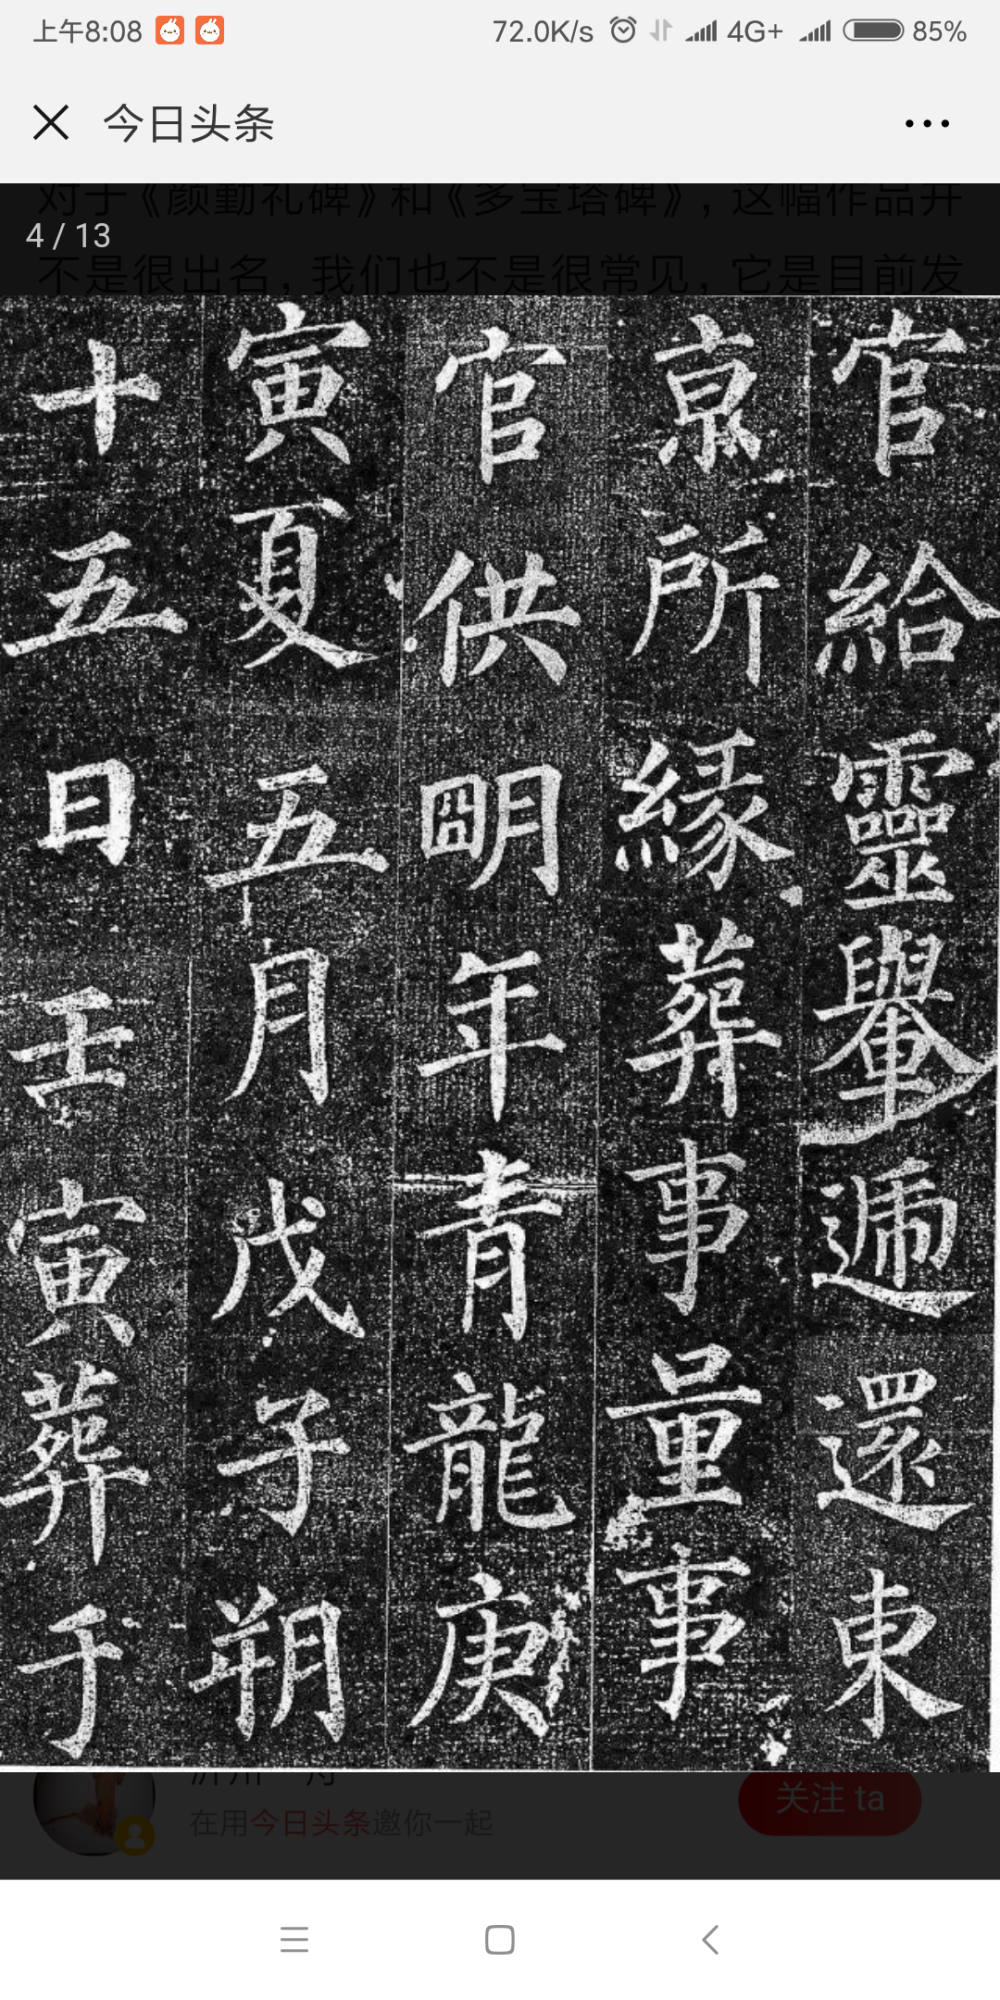 上午8:08
72.0K/s
4G+
85%
今日头条
对于《颜勤礼碑》和《多宝塔碑》，这幅作品并
4 / 13
不是很出名，我们也不是很常见，它是目前发
官給靈轝遞還東
京所緣葬事量事
官供明年青龍庚
寅夏五月戊子朔
十五日壬寅葬于
在用今日头条邀你一起
关注 ta